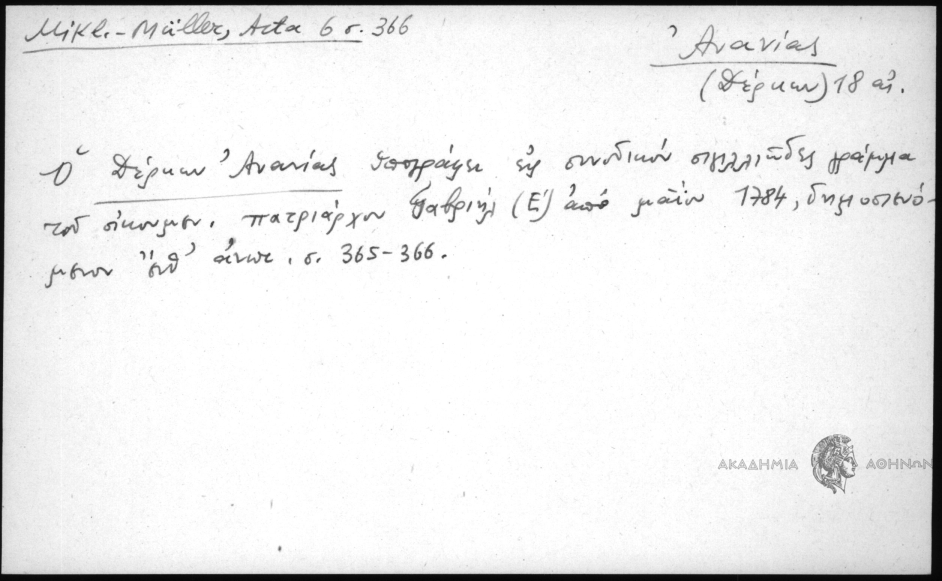 Mikl.-Müller, Acta 6 σ. 366
Ἀνανίας
(Δέρκων) 18 αἰ.
Ὁ Δέρκων Ἀνανίας ὑπογράφει εἰς συνοδικόν σιγιλλιῶδες γράμμα
τοῦ οἰκουμεν. πατριάρχου Γαβριήλ (Ε΄) ἀπό μαΐου 1784, δημοσιευό-
μενον ἔνθ' ἀνωτ. σ. 365-366.
ΑΚΑΔΗΜΙΑ ΑΘΗΝΩΝ